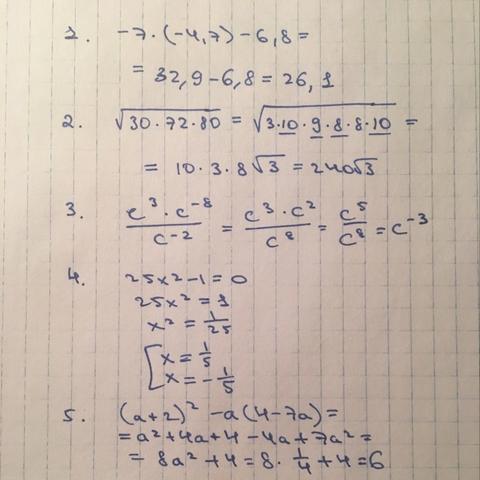 1. -7·(-4,7)-6,8=
= 32,9-6,8=26,1
2. √(30·72·80) = √(3·10·9·8·8·10) =
= 10·3·8√3 = 240√3
3. (c³·c⁻⁸)/(c⁻²) = (c³·c²)/(c⁸) = c⁵/c⁸ = c⁻³
4. 25x²-1=0
25x²=1
x²=1/25
[x=1/5
x=-1/5
5. (a+2)²-a(4-7a)=
=a²+4a+4-4a+7a²=
= 8a²+4=8·1/4+4=6